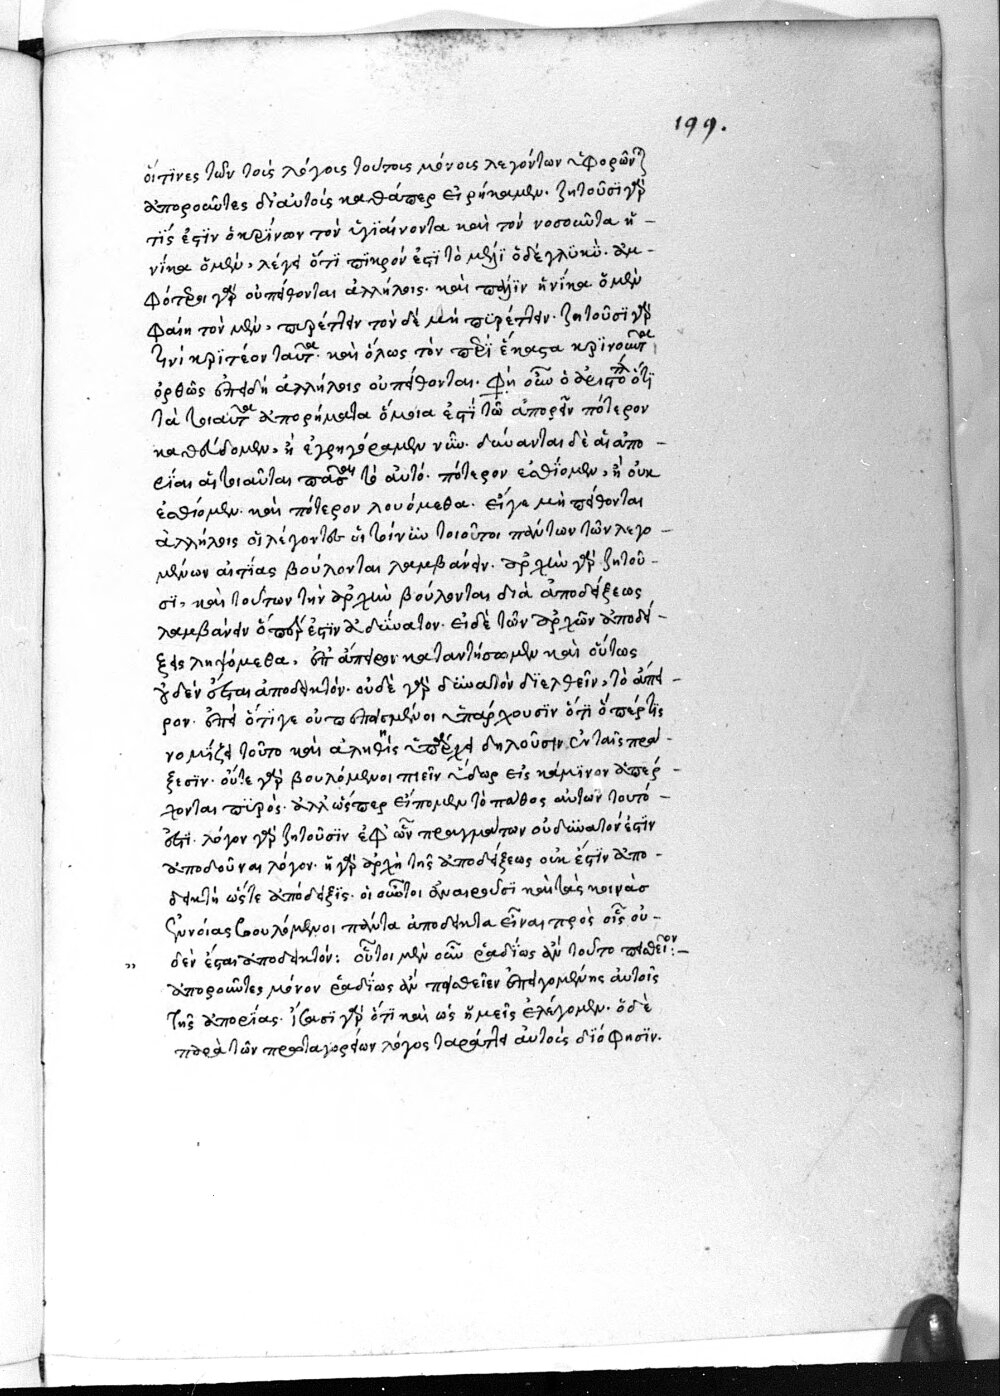 199.
οἵτινες τῶν τοῖς λόγοις τούτοις μόνοις λεγόντων
ἀποροῦντες δι᾽ αὐτοὺς καθάπερ εἰρήκαμεν. ζητοῦσι γὰρ
τίς ἐστιν ὁ κρίνων τὸν ὑγιαίνοντα καὶ τὸν νοσοῦντα ἡ-
νίκα ὁ μὲν, λέγει ὅτι πικρόν ἐστι τὸ μέλι ὁ δὲ γλυκύ. ἀμ-
φότεροι γὰρ οὐ πείθονται ἀλλήλοις. καὶ πάλιν ἡνίκα ὁ μὲν
φαίη τὸν μὲν, πυρέττειν τὸν δὲ μὴ πυρέττειν. ζητοῦσι γὰρ
τίνι κριτέον ταῦτα. καὶ ὅλως τὸν περὶ ἕκαστα κρίνοντα
ὀρθῶς ἐπειδὴ ἀλλήλοις οὐ πείθονται. φησὶ οὖν ὁ ἀριστοτέλης ὅτι
τὰ τοιαῦτα ἀπορήματα ὅμοια ἐστὶ τῷ ἀπορεῖν πότερον
καθεύδομεν, ἢ ἐγρηγόραμεν νῦν. δύνανται δὲ αἱ ἀπο-
ρίαι αἱ τοιαῦται πᾶσαι τὸ αὐτό. πότερον ἐσθίομεν, ἢ οὐκ
ἐσθίομεν. καὶ πότερον λουόμεθα. εἴγε μὴ πείθονται
ἀλλήλοις οἱ λέγοντες οἱ τοίνυν τοιοῦτοι πάντων τῶν λεγο-
μένων αἰτίας βούλονται λαμβάνειν. ἀρχὴν γὰρ ζητοῦ-
σι, καὶ τούτων τὴν ἀρχὴν βούλονται διὰ ἀποδείξεως
λαμβάνειν ὅπερ ἐστὶν ἀδύνατον. εἰ δὲ τῶν ἀρχῶν ἀποδεί-
ξεις ληψόμεθα, ἐπ᾽ ἄπειρον καταντήσομεν καὶ οὕτως
οὐδὲν ἔσται ἀποδεικτόν. οὐδὲ γὰρ δυνατὸν διελθεῖν, τὸ ἄπει-
ρον. ἐπεὶ ὅτι γε οὐ πεπεισμένοι ὑπάρχουσιν ὅτι ὅπερ τις
νομίζει τοῦτο καὶ ἀληθὲς ὑπάρχει δηλοῦσιν ἐν ταῖς πρά-
ξεσιν. οὔτε γὰρ βουλόμενοι πιεῖν ὕδωρ εἰς κάμινον ἀπέρ-
χονται πυρός. ἀλλ᾽ ὥσπερ εἴπομεν τὸ πάθος αὐτῶν τοῦτό-
ἐστι. λόγον γὰρ ζητοῦσιν ἐφ᾽ ὧν πραγμάτων οὐ δυνατόν ἐστιν
ἀποδοῦναι λόγον. ἡ γὰρ ἀρχὴ τῆς ἀποδείξεως οὐκ ἔστιν ἀπο-
δεικτὴ ὥστε ἀπόδειξις. οἱ οὖν τοι ἀναιροῦσι καὶ τὰς κοινὰς
ἐννοίας βουλόμενοι πάντα ἀποδεικτὰ εἶναι πρὸς οἷς οὐ-
δὲν ἔσται ἀποδεικτόν: οὗτοι μὲν οὖν ῥαδίως ἂν τοῦτο πεισθεῖεν:-
ἀποροῦντες μόνον ῥαδίως ἂν πεισθεῖεν ἐπαγομένης αὐτοῖς
τῆς ἀπορίας. ἴσασι γὰρ ὅτι καὶ ὡς ἡμεῖς ἐλέγομεν. ὁ δὲ
παρὰ τῶν πρωταγορείων λόγος ταράττει αὐτοὺς διό φησιν.